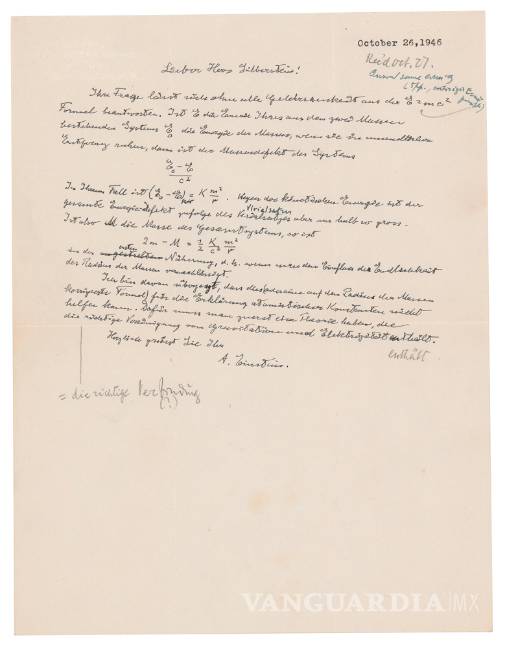 October 26, 1946
Rec'd oct. 27.
same evening
Lieber Herr Silberstein!
Ihre Frage lässt sich ohne alle Gelehrsamkeit aus der E = mc²
Formel beantworten. Ist E die Energie Ihres aus den zwei Massen
bestehenden Systems, E₀ die Energie der Massen, wenn sie in unendlicher
Entfernung ruhen, dann ist der Massendefekt des Systems
E₀ - E / c²
In Ihrem Fall ist (E₀ - E)pot = K m²/r. Wegen der kinetischen Energie ist der
gesamte Energiedefekt zufolge des Virialsatzes aber nur halb so gross.
Ist also M die Masse des Gesamtsystems, so ist
2m - M = 1/2 K/c² m²/r
in der ersten Näherung, d. h. wenn man den Einfluss der Endlichkeit
des Radius der Massen vernachlässigt.
Ich bin davon überzeugt, dass das
Formel) für die Erklärung atomistischer Konstanten nicht
helfen kann. Dafür muss man zuerst eine Theorie haben, die
die richtige Vereinigung von Gravitation und Elektrizität enthält.
enthält
Herzlich grüsst Sie Ihr
A. Einstein.
= die richtige Verbindung
(?)
VANGUARDIA|MX